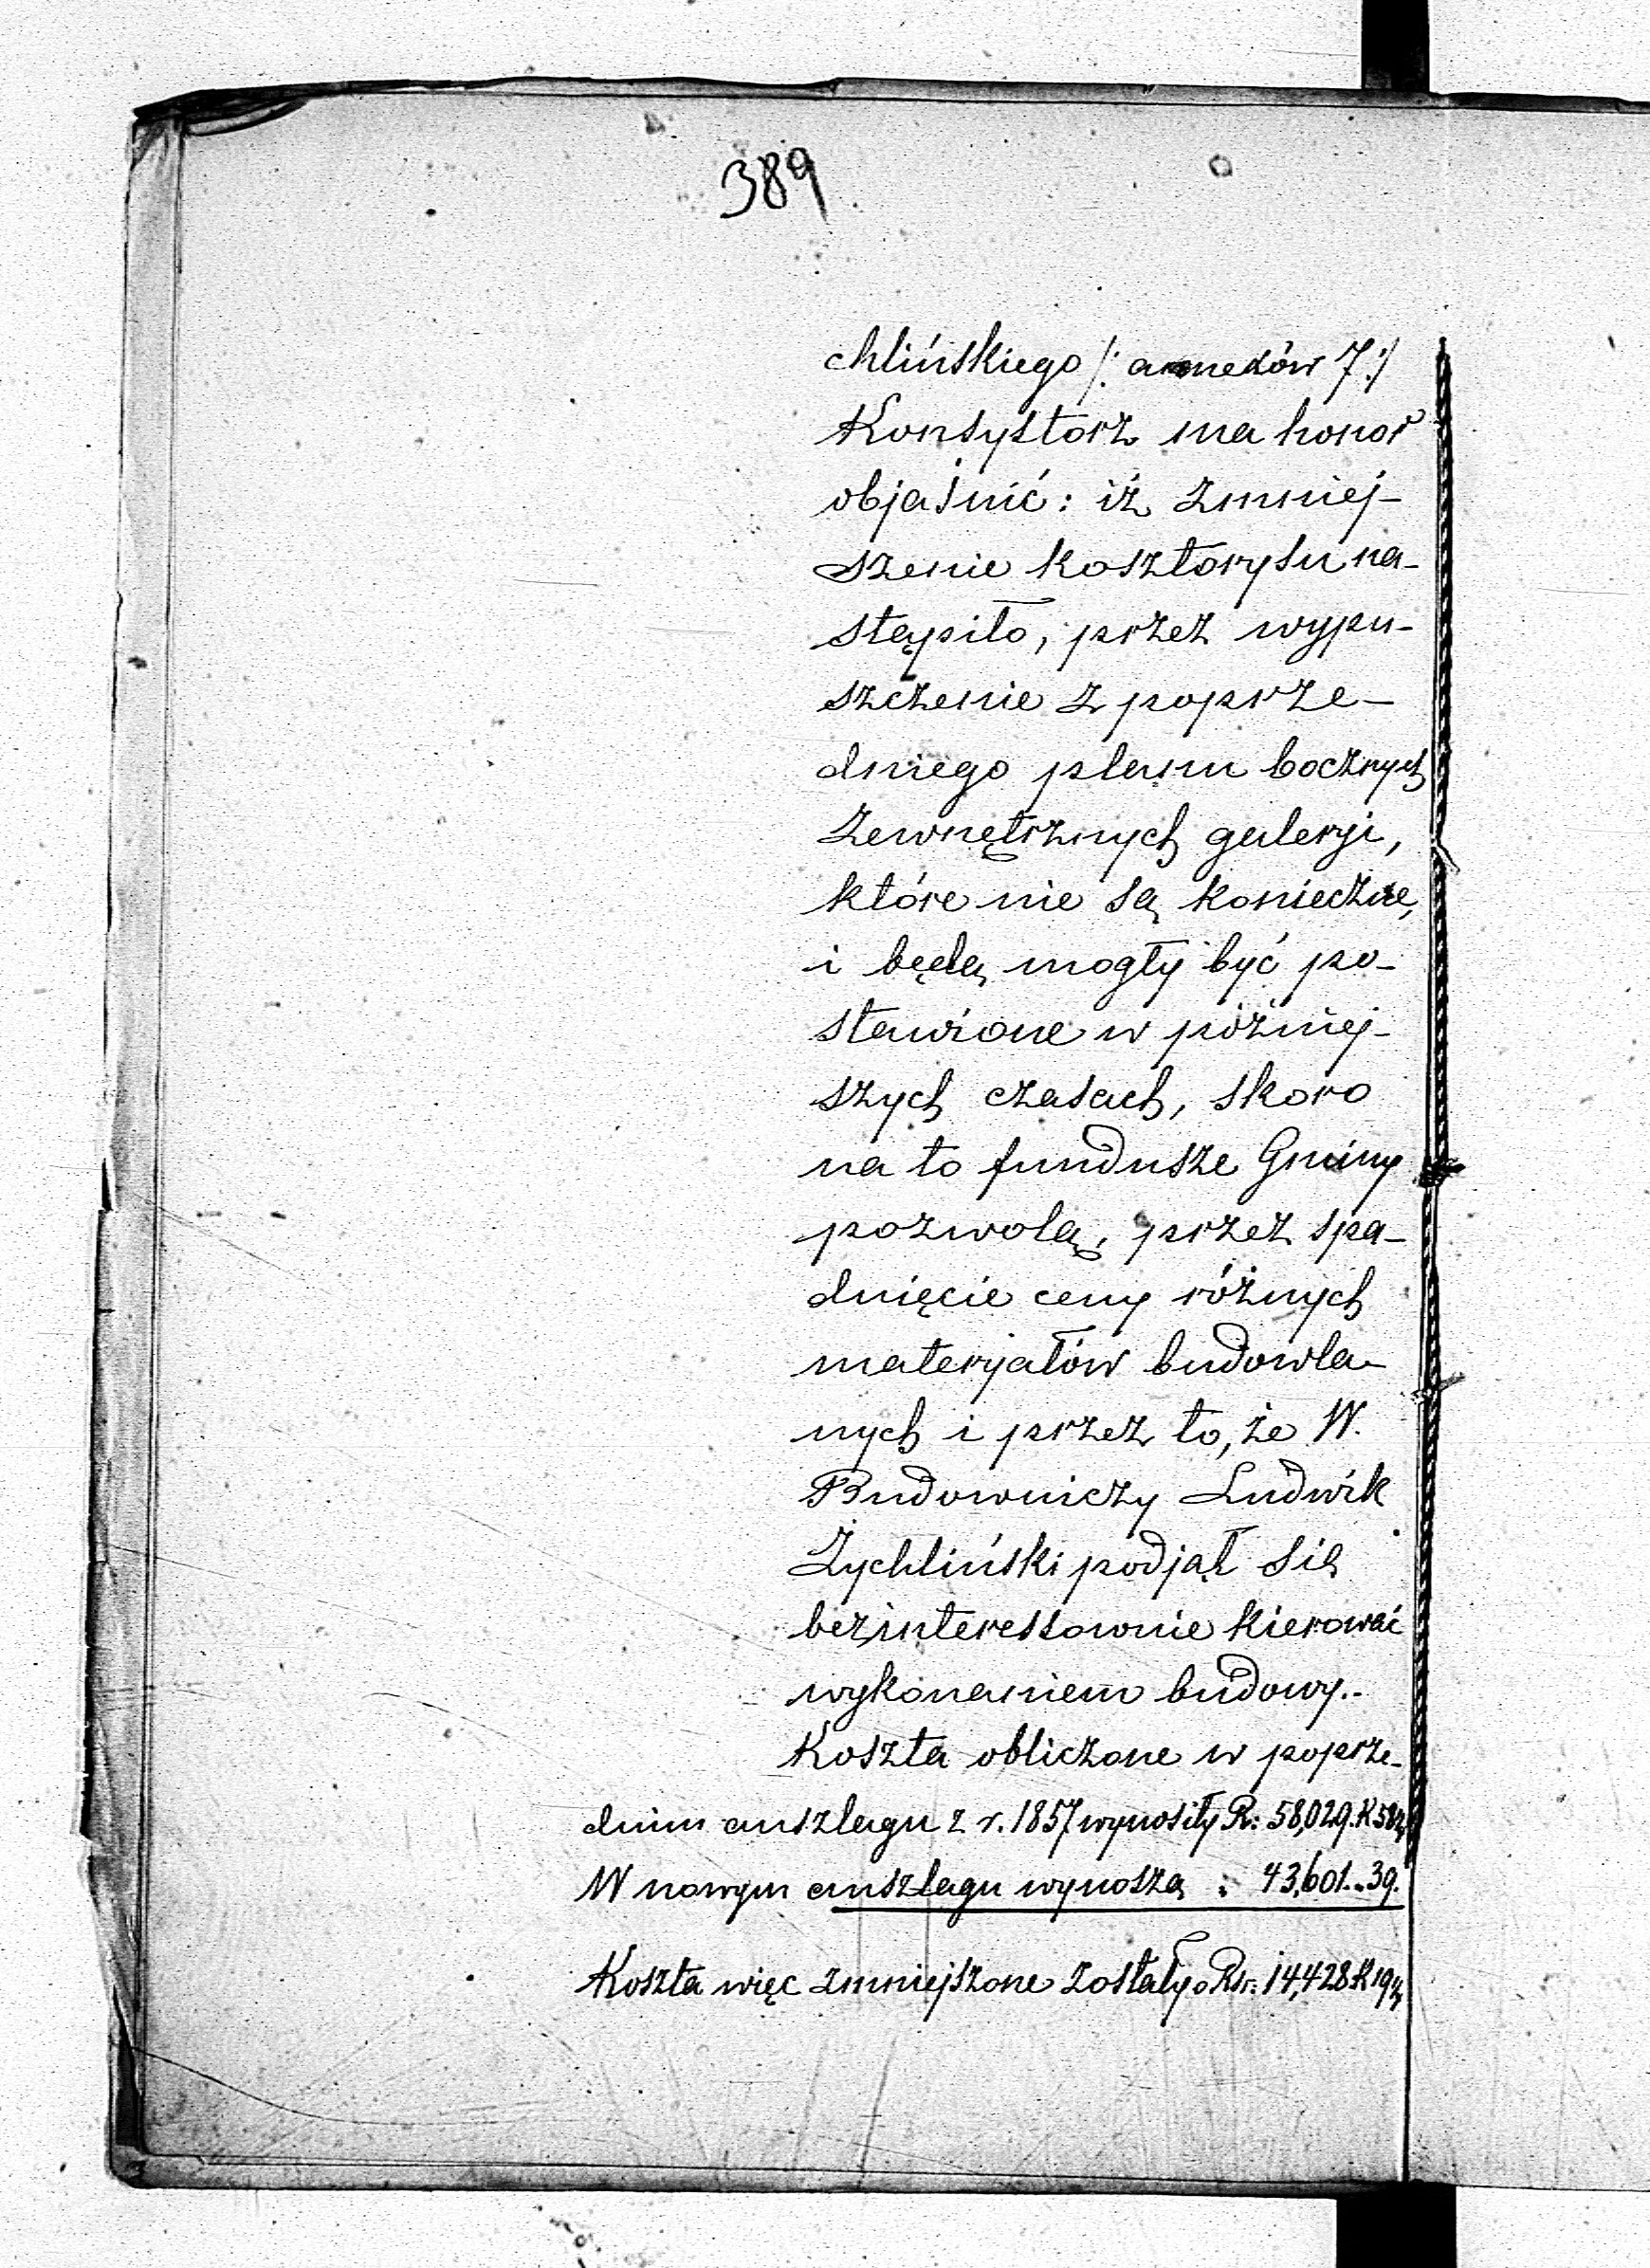 389
chlińskiego /: annexów 7:/
Konsystorz ma honor
objaśnić: iż zmniej-
szenie kosztorysu na-
stąpiło, przez wypu-
szczenie z poprze-
dniego planu bocznych
zewnętrznych galeryi,
które nie są konieczne,
i będą mogły być po-
stawione w później-
szych czasach, skoro
na to fundusze Gminy
pozwolą, przez spa-
dnięcie ceny różnych
materyałów budowla-
nych i przez to, że W.
Budowniczy Ludwik
Żychliński podjął się
bezinteressownie kierować
wykonaniem budowy.-
Koszta obliczone w poprze-
dnim anszlagu z r. 1857 wynosiły R: 58,029. K 58½
W nowym anszlagu wynoszą : 43,601.. 39.
Koszta więc zmniejszone zostały o Rsr: 14,428 K 19½